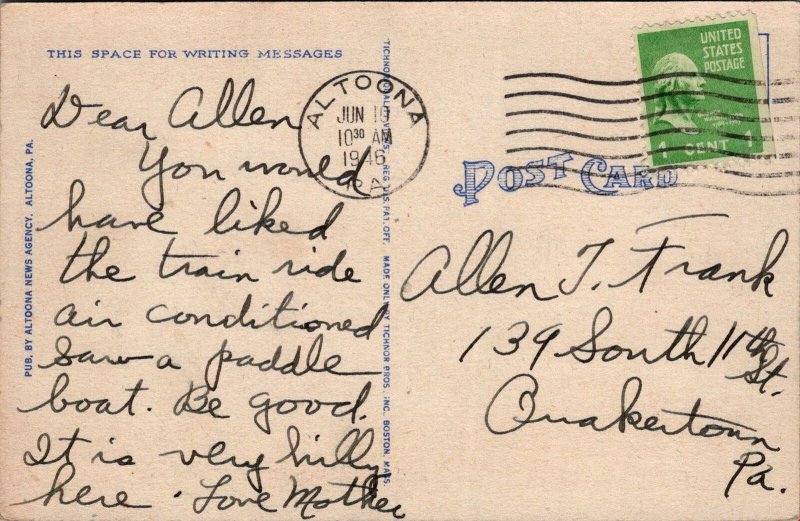 THIS SPACE FOR WRITING MESSAGES
Dear Allen
You would
have liked
the train ride
air conditioned
Saw a paddle
boat. Be good.
It is very hilly
here. Love Mother
PUB. BY ALTOONA NEWS AGENCY, ALTOONA, PA.
REG. U.S. PAT. OFF. MADE ONLY BY TICHNOR BROS. INC. BOSTON, MASS.
ALTOONA
JUN 10
10 30 AM
1946
PA
UNITED
STATES
POSTAGE
1 CENT 1
POST CARD
Allen T. Frank
139 South 11th St.
Quakertown
Pa.